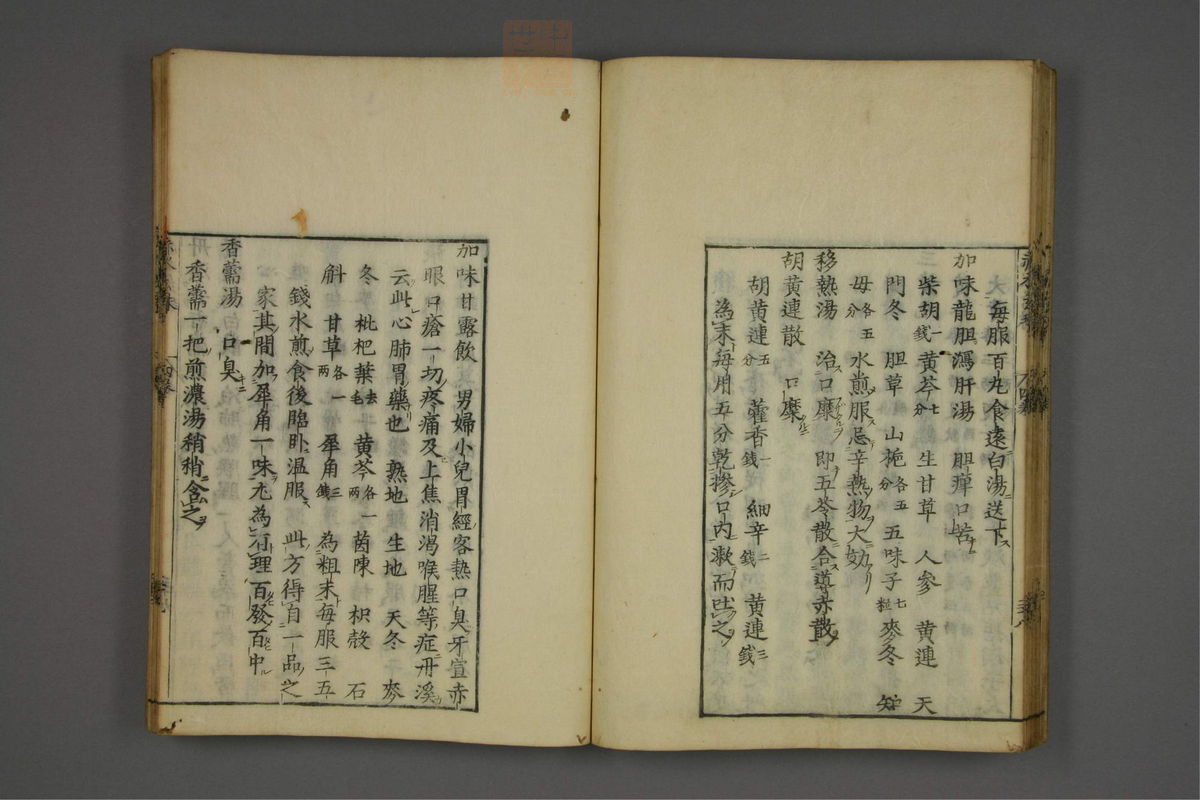 每服百九食遠白湯送下
加味龍胆瀉肝湯 胆癉口苦
柴胡一錢黃芩七分生甘草 人參 黃連 天
門冬 胆草 山梔各五分五味子七粒麥冬 知
母各五分水煎服忌辛熱物大効
移熱湯 治口糜 即五苓散合導赤散
胡黃連散 口糜
胡黃連五分 藿香一錢 細辛二錢 黃連三錢
為末每用五分乾摻口內漱而吐之
加味甘露飲 男婦小兒胃經客熱口臭牙宣赤
眼口瘡一切疼痛及上焦消渴喉腥等症丹溪
云此心肺胃藥也 熟地 生地 天冬 麥
冬 枇杷葉去毛 黃芩各一兩茵陳 枳殼 石
斛 甘草各一兩 犀角三錢為粗末每服三五
錢水煎食後臨臥溫服 此方得自一品之
家其間加犀角一味尤為有理百發百中
香薷湯 口臭
香薷一把煎濃湯稍稍含之